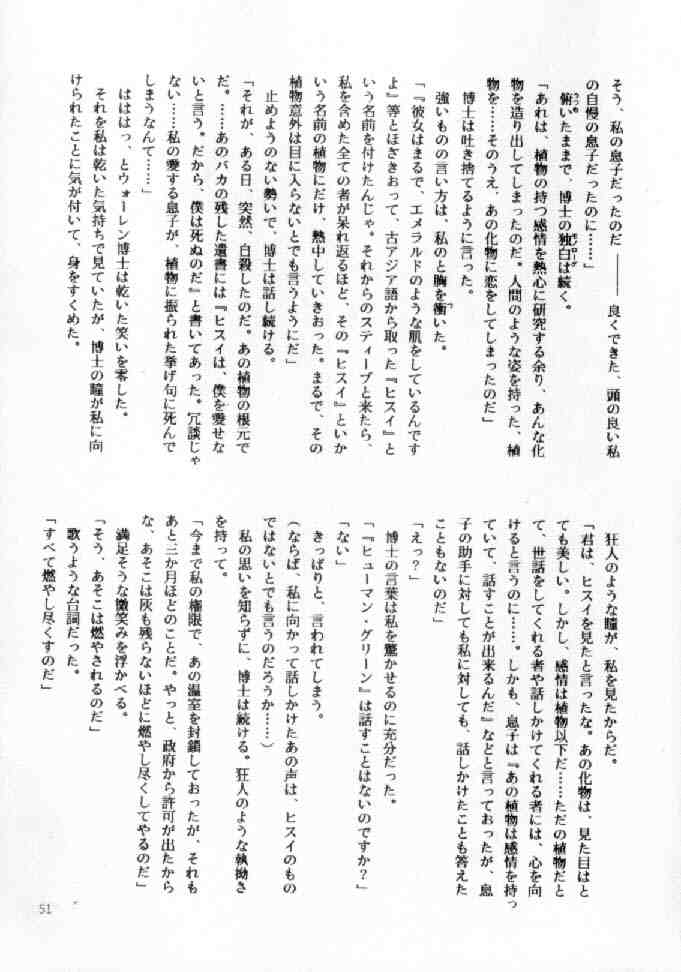 そう、私の息子だったのだ―――良くできた、頭の良い私
の自慢の息子だったのに……」
俯いたままで、博士の独白は続く。
「あれは、植物の持つ感情を熱心に研究する余り、あんな化
物を造り出してしまったのだ。人間のような姿を持った、植
物を……そのうえ、あの化物に恋をしてしまったのだ」
博士は吐き捨てるように言った。
強いものの言い方は、私のと胸を衝いた。
「『彼女はまるで、エメラルドのような肌をしているんです
よ』等とほさきおって、古アジア語から取った『ヒスイ』と
いう名前を付けたんじゃ。それからのスティーブと来たら、
私を含めた全ての者が呆れ返るほど、その『ヒスイ』といか
いう名前の植物にだけ、熱中していきおった。まるで、その
植物意外は目に入らないとでも言うようにだ」
止めようのない勢いで、博士は話し続ける。
「それが、ある日、突然、自殺したのだ。あの植物の根元で
だ。……あのバカの残した遺書には『ヒスイは、僕を愛せな
いと言う。だから、僕は死ぬのだ』と書いてあった。冗談じゃ
ない……私の愛する息子が、植物に振られた挙げ句に死んで
しまうなんて……」
はははっ、とウォーレン博士は乾いた笑いを零した。
それを私は乾いた気持ちで見ていたが、博士の瞳が私に向
けられたことに気が付いて、身をすくめた。
狂人のような瞳が、私を見たからだ。
「君は、ヒスイを見たと言ったな。あの化物は、見た目はと
ても美しい。しかし、感情は植物以下だ……ただの植物だと
て、世話をしてくれる者や話しかけてくれる者には、心を向
けると言うのに……。しかも、息子は『あの植物は感情を持っ
ていて、話すことが出来るんだ』などと言っておったが、息
子の助手に対しても私に対しても、話しかけたことも答えた
こともないのだ」
「えっ?」
博士の言葉は私を驚かせるのに充分だった。
「『ヒューマン・グリーン』は話すことはないのですか?」
「ない」
きっぱりと、言われてしまう。
(ならば、私に向かって話しかけたあの声は、ヒスイのもの
ではないとでも言うのだろうか……)
私の思いを知らずに、博士は続ける。狂人のような執拗さ
を持って。
「今まで私の権限で、あの温室を封鎖しておったが、それも
あと三か月ほどのことだ。やっと、政府から許可が出たから
な、あそこは灰も残らないほどに燃やし尽くしてやるのだ」
満足そうな微笑みを浮かべる。
「そう、あそこは燃やされるのだ」
歌うような台詞だった。
「すべて燃やし尽くすのだ」
51